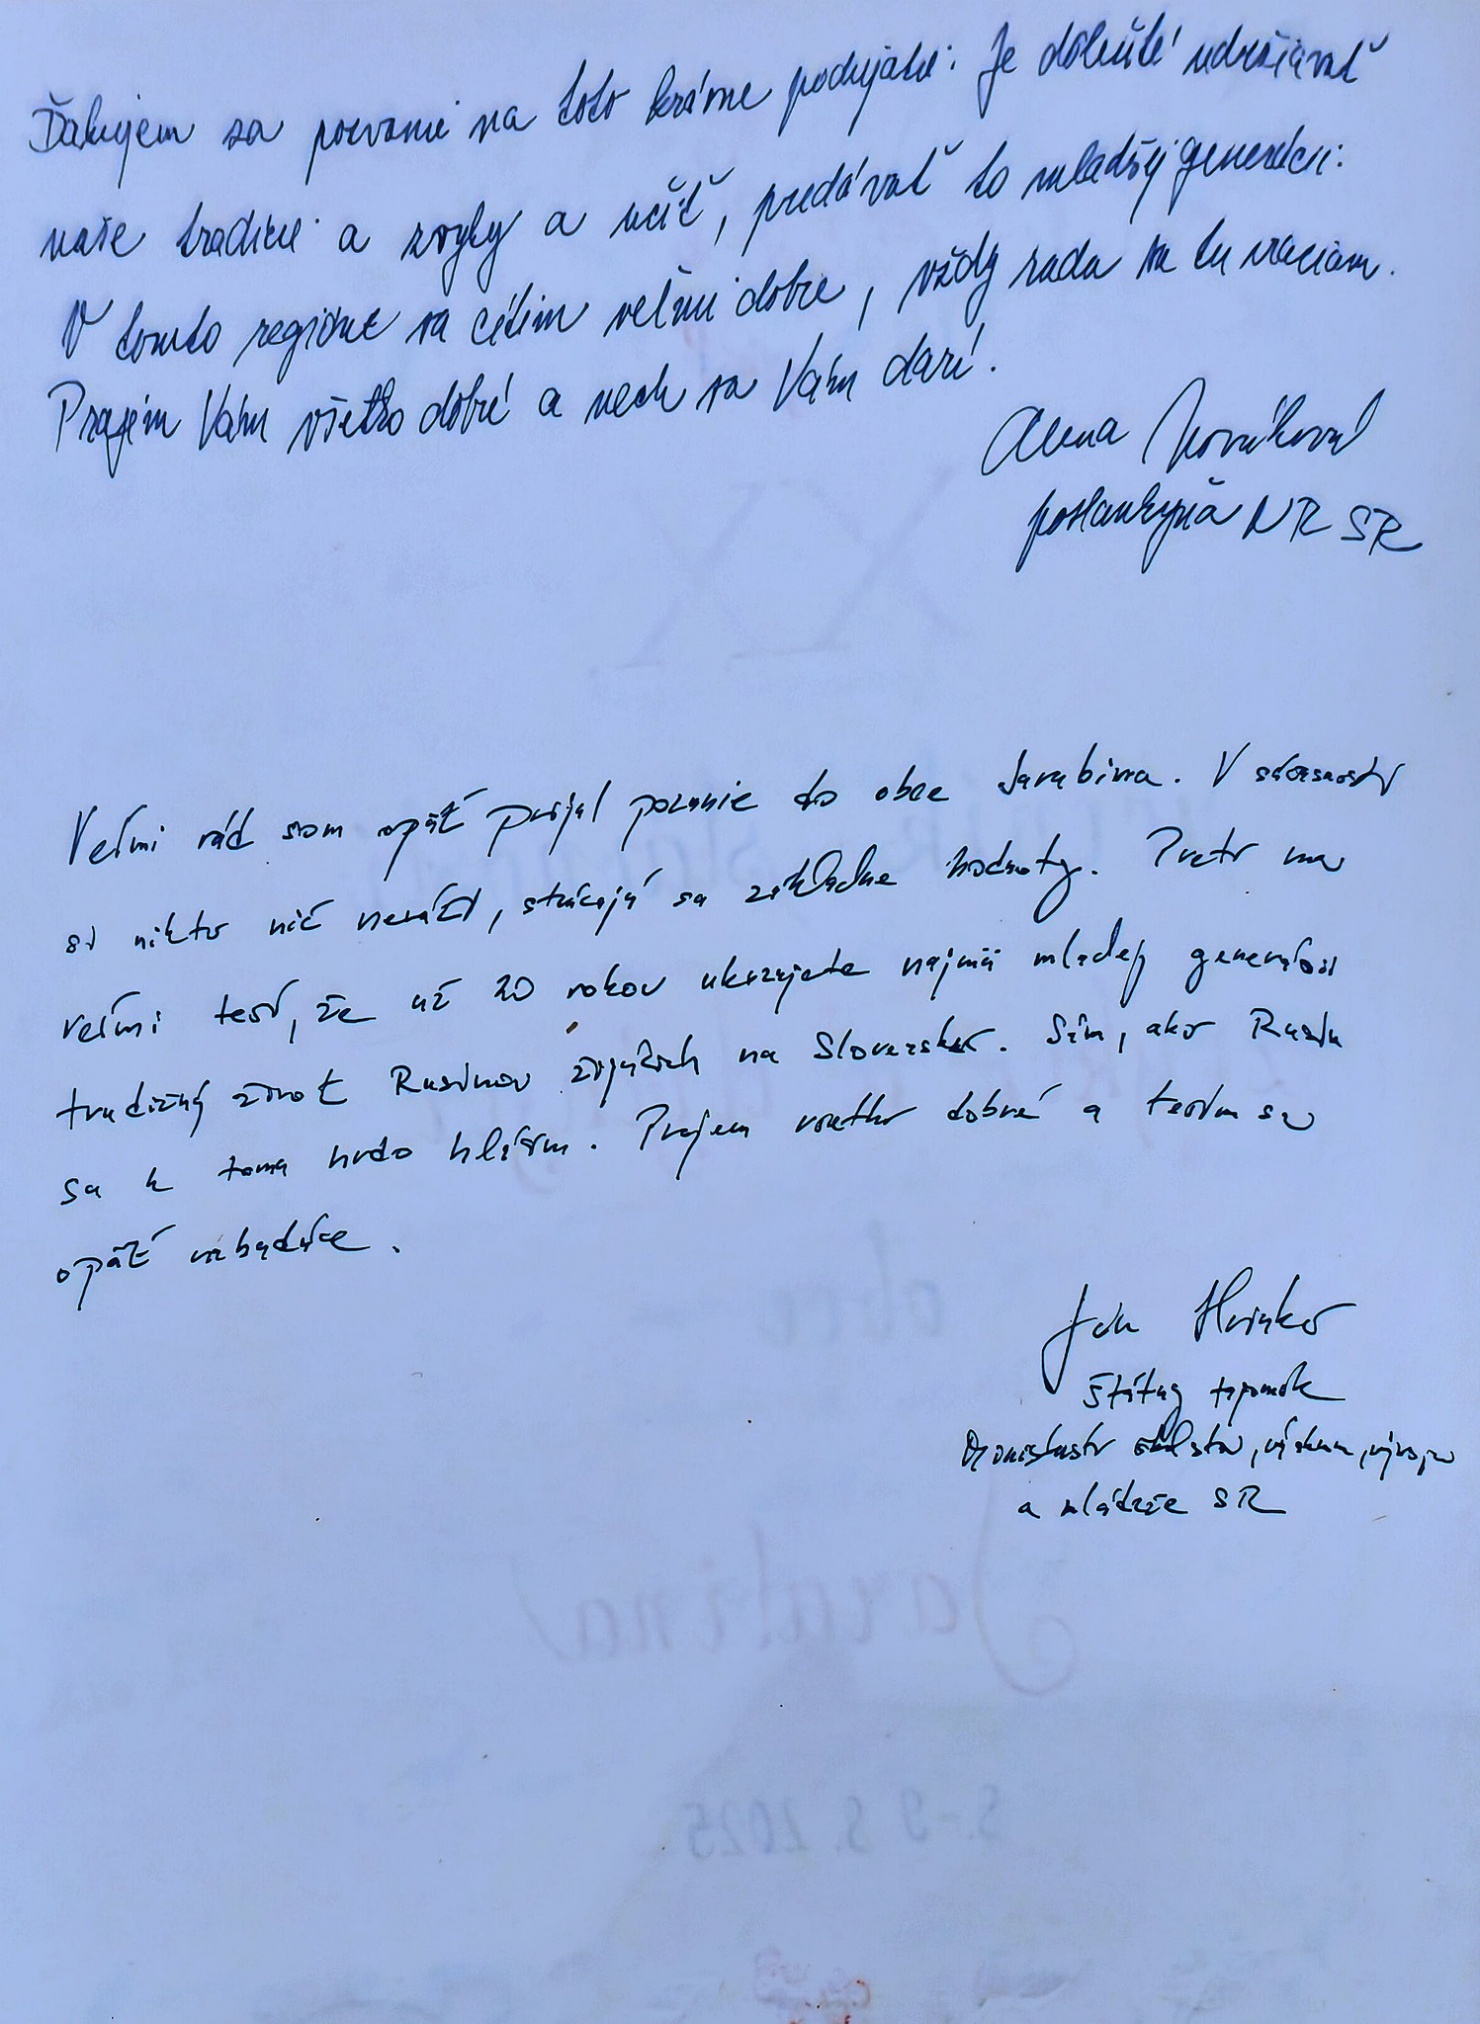 Ďakujem za pozvanie na toto krásne podujatie. Je dôležité udržiavať
naše tradície a zvyky a učiť, predávať to mladšej generácii.
V tomto regióne sa cítim veľmi dobre, vždy rada sa tu vraciam.
Prajem Vám všetko dobré a nech sa Vám darí.
Anna Nováková
poslankyňa NR SR
Veľmi rád som opäť prijal pozvanie do obce Jarabina. V súčasnosti
si nikto nič neváži, strácajú sa základne hodnoty. Preto ma
veľmi teší, že už 20 rokov ukazujete najmä mladej generácii
tradičný život Rusínov žijúcich na Slovensku. Sám, ako Rusín
sa k tomu hrdo hlásim. Prajem všetko dobré a teším sa
opäť nabudúce.
Ján Hrinko
štátny tajomník
Ministerstvo školstva, výskumu, vývoja
a mládeže SR
obce
Jarabina
8.-9.8.2025